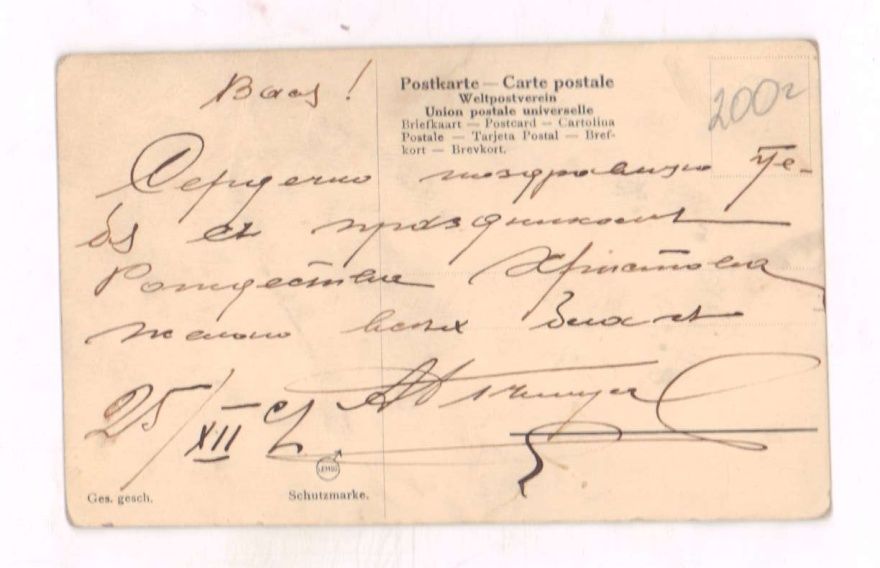 Вася!
Postkarte — Carte postale
Weltpostverein
Union postale universelle
Briefkaart — Postcard — Cartolina
Postale — Tarjeta Postal — Bref-
kort — Brevkort.
200г
Сердечно поздравляю Те-
бя съ праздникомъ
Рождества Христова
желаю всѣхъ благъ
25/XII
LEMBO
Ges. gesch.
Schutzmarke.